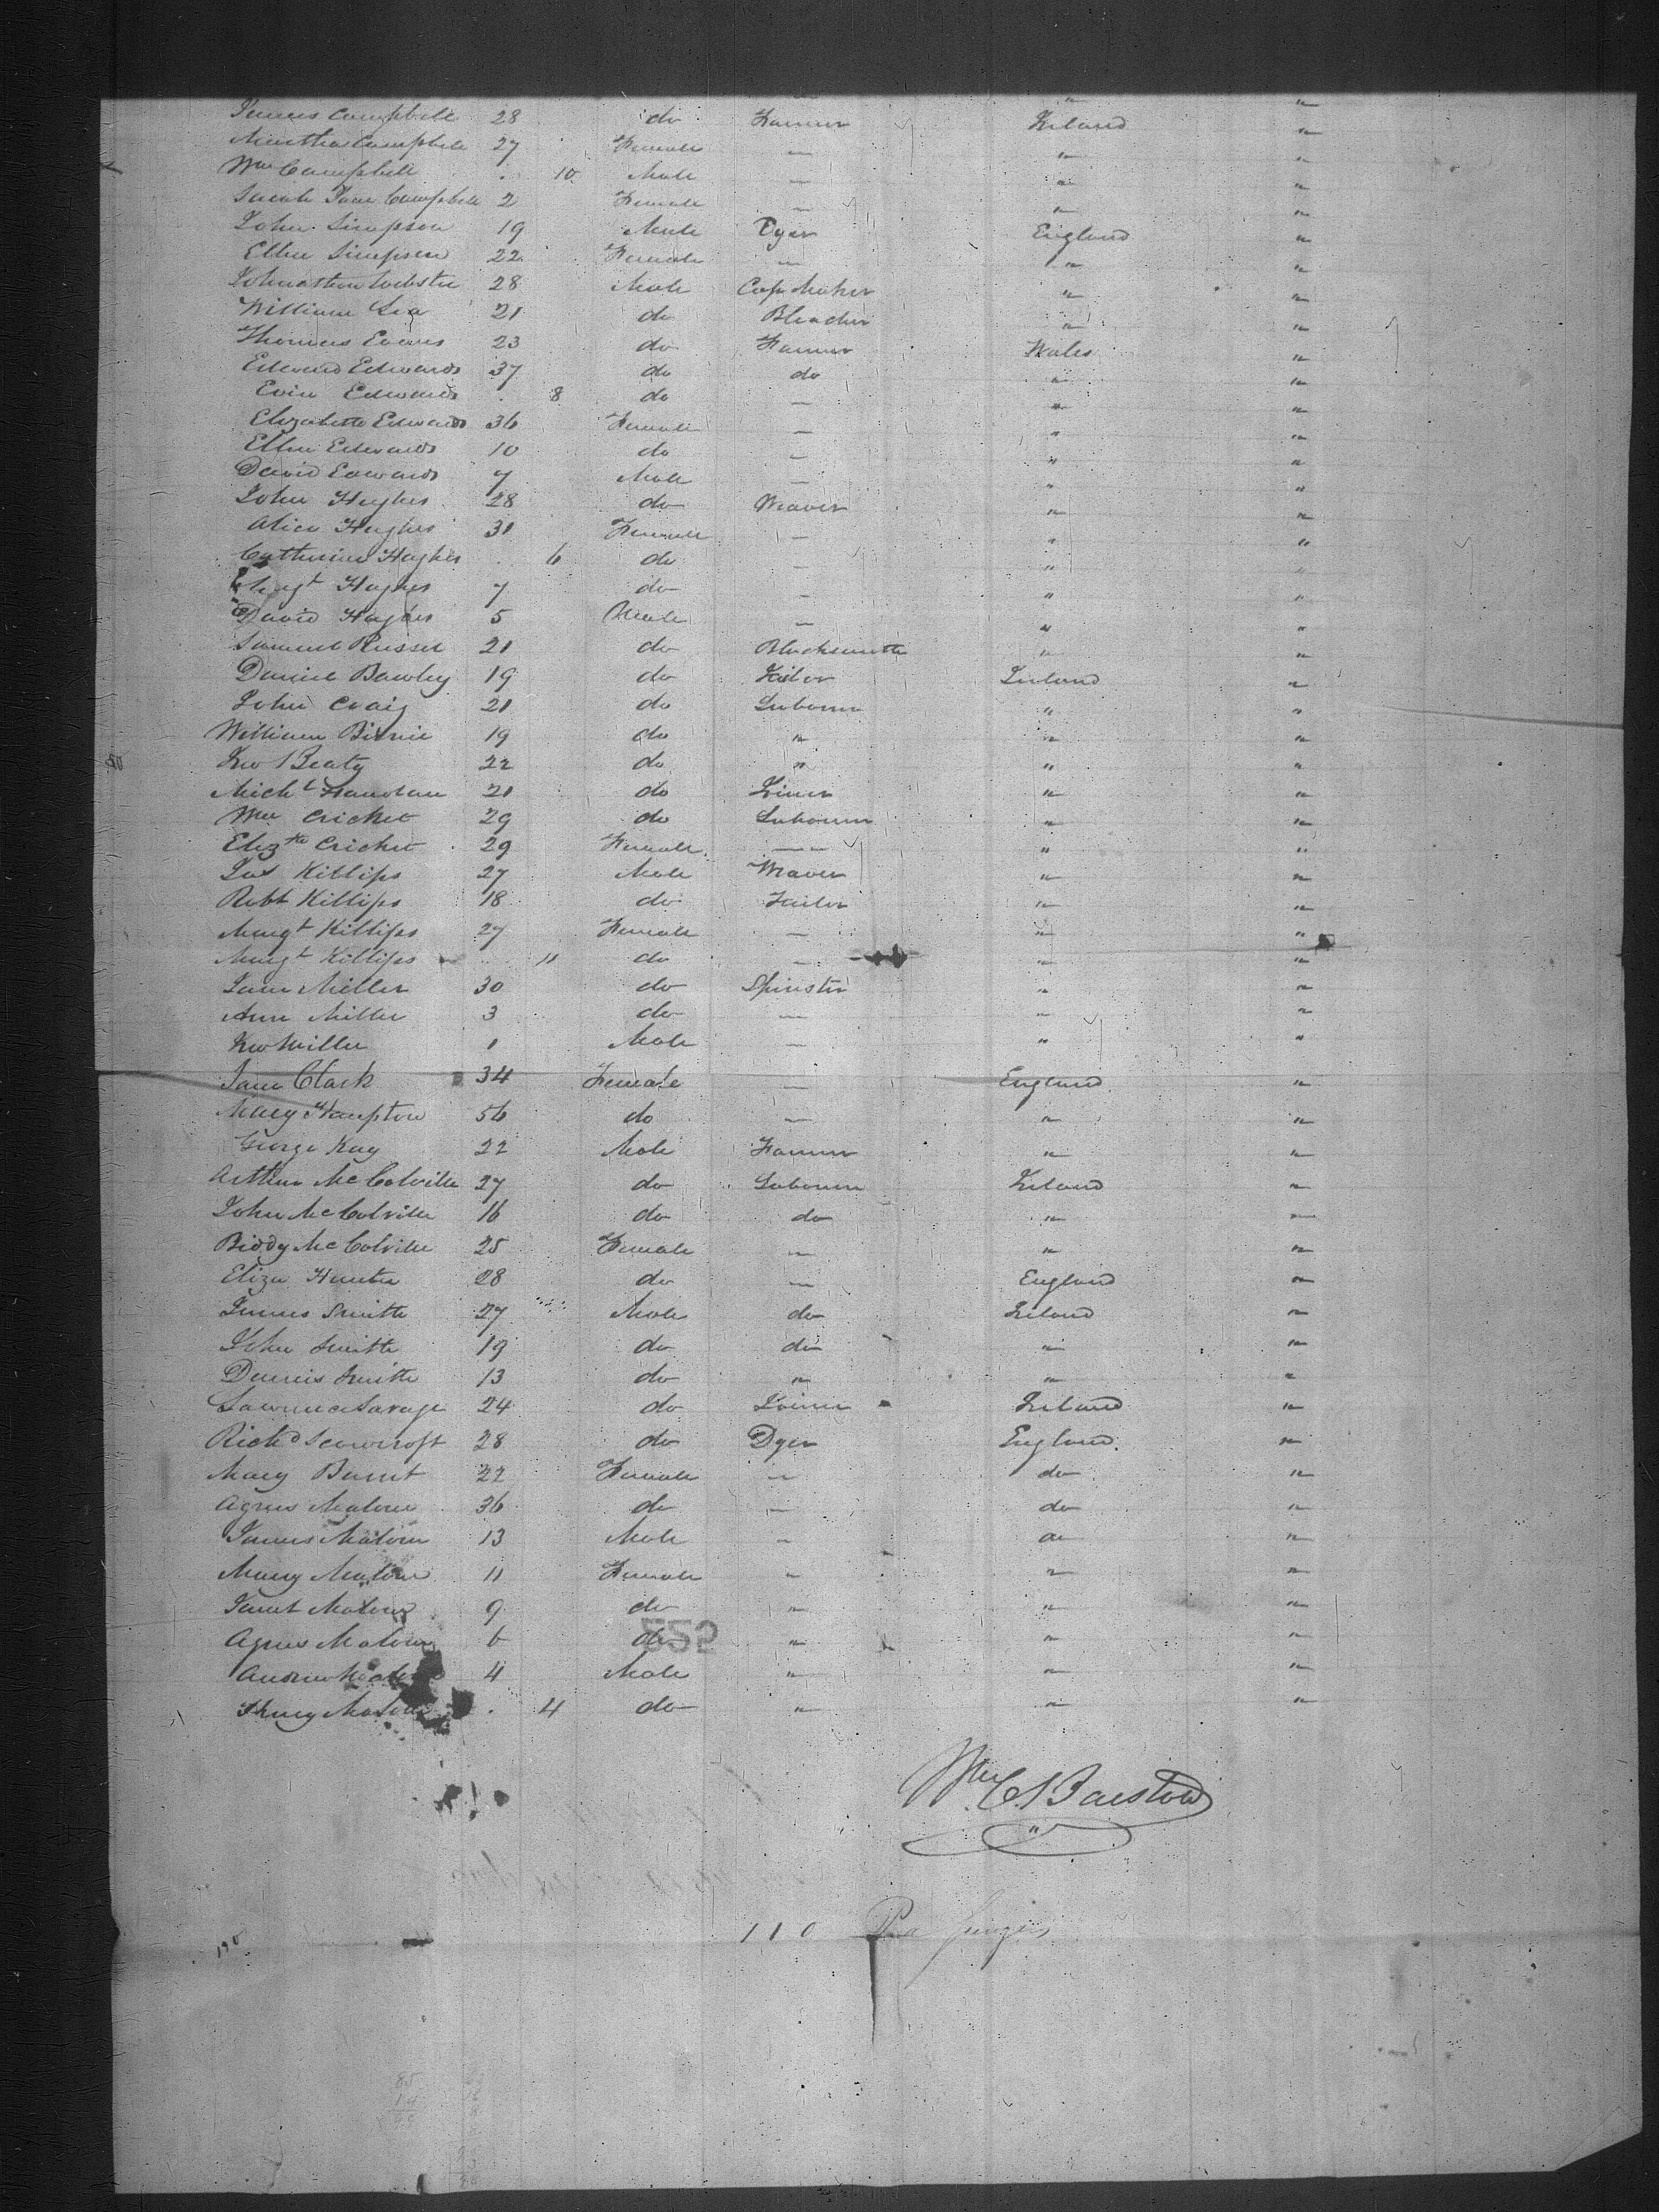 James Campbell 28 do Farmer Ireland "
Martha Campbell 27 Female — " "
Wm Campbell . 10 Male — " "
Sarah Jane Campbell 2 Female — " "
John Simpson 19 Male Dyer England "
Ellen Simpson 22 Female — " "
Johnathan Webster 28 Male Cap Maker " "
William Lea 21 do Bleacher " "
Thomas Evans 23 do Farmer Wales "
Edward Edwards 37 do do " "
Evin Edwards . 8 do — " "
Elizabeth Edwards 36 Female — " "
Ellen Edwards 10 do — " "
David Edwards 7 Male — " "
John Hughes 28 do Weaver " "
Alice Hughes 31 Female — " "
Catherine Hughes . 6 do — " "
Hughes 7 do — " "
David Hughes 5 Male — " "
Samuel Russel 21 do Blacksmith " "
Daniel Bawley 19 do Tailor Ireland "
John Craig 21 do Labourer " "
William Birnie 19 do " " "
Beaty 22 do " " "
Michl 21 do " "
Wm Cricket 29 do Labourer " "
Elizth Cricket 29 Female — " "
Jas Killips 27 Male Weaver " "
Robt Killips 18 do Tailor " "
Margt Killips 27 Female — " "
Margt Killips 11 do — " "
Jane Miller 30 do Spinster " "
Ann Miller 3 do — " "
Miller 1 Male — " "
Jane Clark 34 Female — England "
Mary Hampton 56 do — " "
George Kay 22 Male Farmer " "
Arthur McColville 27 do Labourer Ireland "
John McColville 16 do do " "
Biddy McColville 25 Female — " "
Eliza Hunter 28 do — England "
James Smith 27 Male do Ireland "
John Smith 19 do do " "
Dennis Smith 13 do " " "
Lawrence Savage 24 do Ireland "
Richd Scowcroft 28 do Dyer England "
Mary 22 Female — do "
Agnes Malone 36 do — do "
James Malone 13 Male — do "
Mary Malone 11 Female " " "
Janet Malone 9 do " " "
Agnes Malone 6 do " " "
Andrew 4 Male " " "
Henry Malone . 4 do " " "
Wm C. Barstow
110 Passengers
190